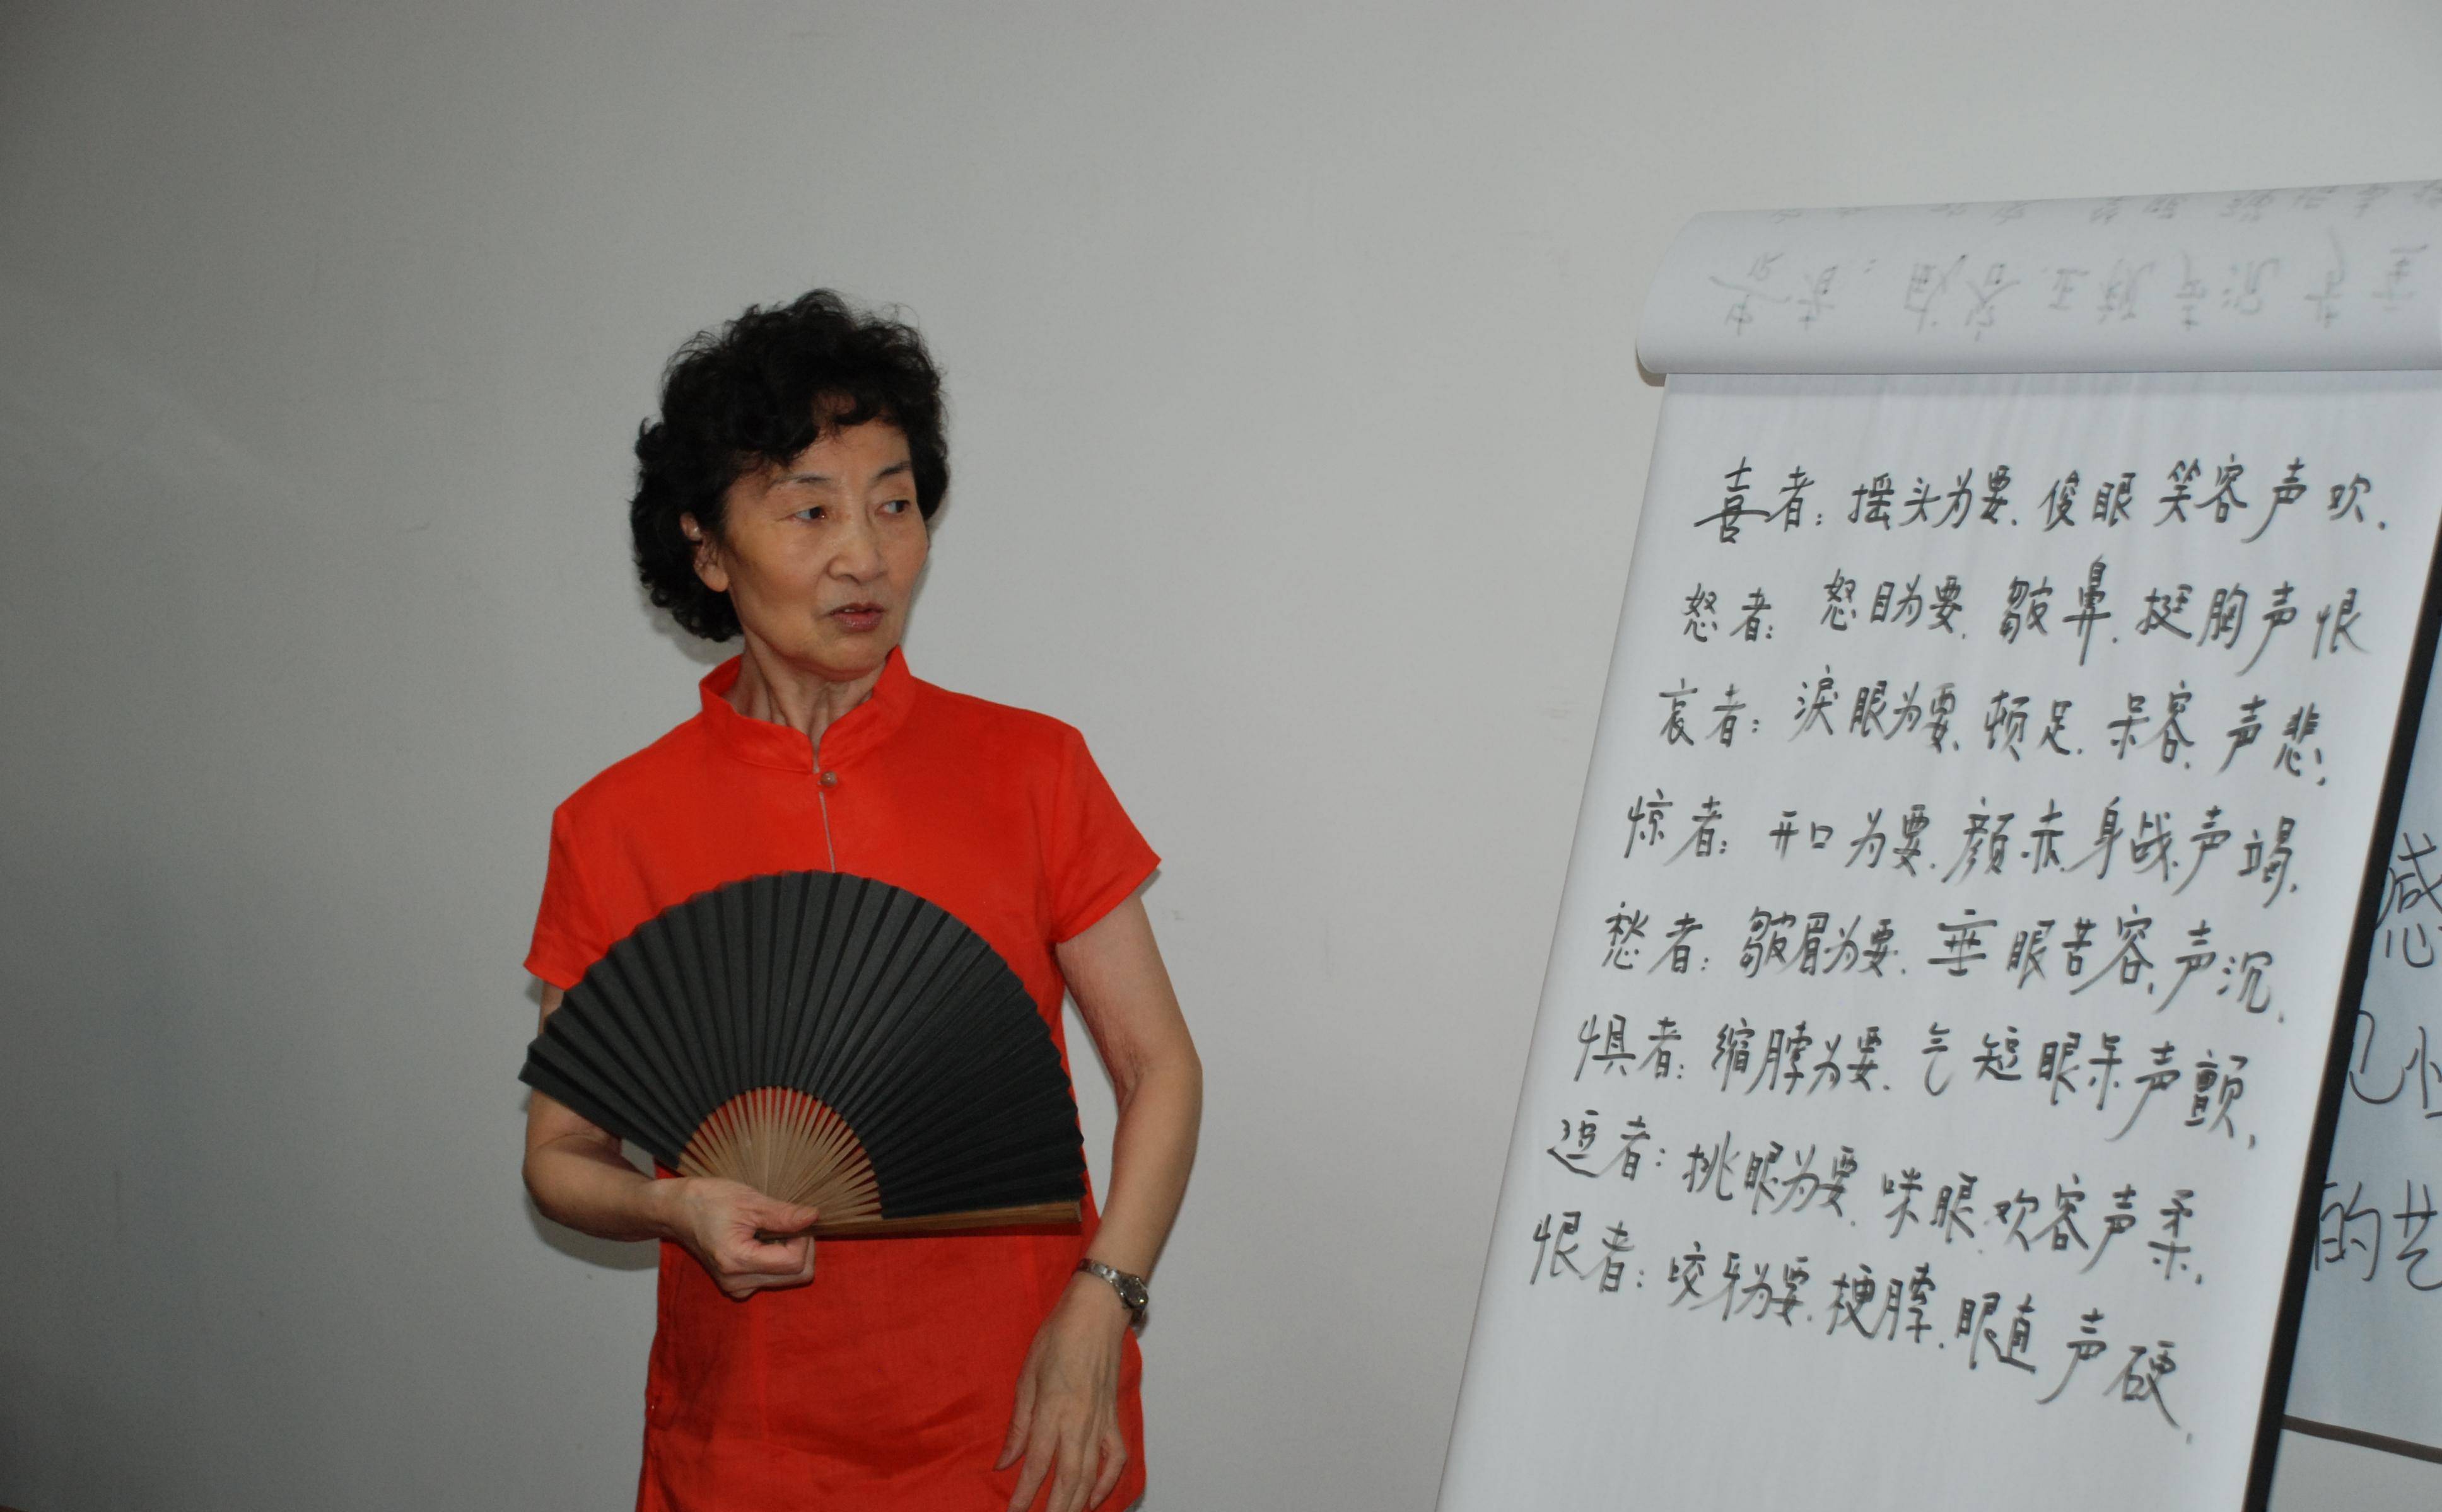 喜者：摇头为要．俊眼笑容声欢．
怒者：怒目为要．皱鼻．挺胸声恨
哀者：淚眼为要．顿足．呆容．声悲；
惊者：开口为要．颜赤．身战．声竭．
愁者：皱眉为要．垂眼苦容．声沉．
惧者：缩脖为要．气短眼呆声颤．
逗者：挑眼为要．咪眼．欢容声柔．
恨者：咬牙为要．梗脖．眼直声硬．
感
的艺